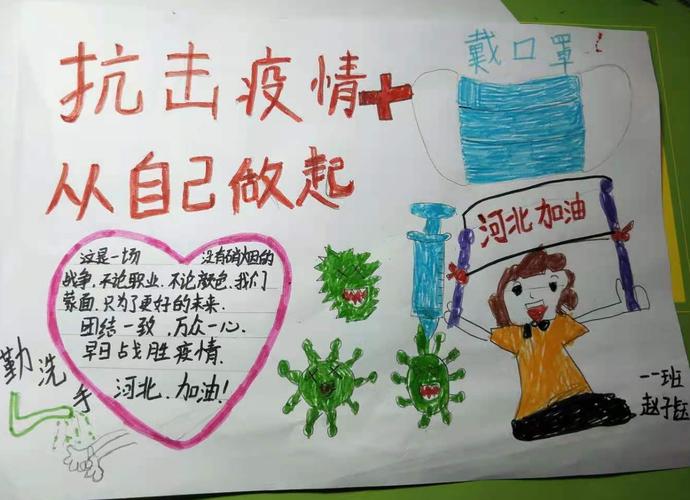 抗击疫情
从自己做起
戴口罩!
河北加油
这是一场 没有硝烟的
战争，不论职业，不论颜色，我们
蒙面，只为了更好的未来.
团结一致，万众一心.
早日占戈胜疫情.
河北，加油!
勤洗手
一班
赵子钰